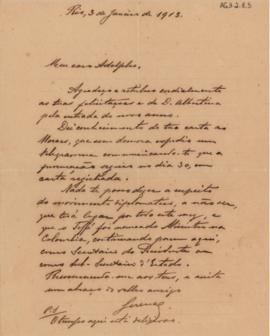 AG3-2.8.5
Rio, 3 de Janeiro de 1913.
Meu caro Adolpho,
Agradeço e retribuo cordialmente
as tuas felicitações e de D. Albertina
pela entrada do novo anno.
Dei conhecimento da tua carta ao
Moraes, que sem demora expediu um
telegramma communicando-te que a
procuração seguira no dia 30, em
carta registrada.
Nada te posso dizer a respeito
do movimento diplomatico, a não ser,
que terá lugar por todo este mez, e
que o Toffi foi nomeado Ministro na
Colombia, continuando porem aqui,
como Secretario do Presidente
como Sub-Secretario d'Estado.
Recommenda-me aos teus, e aceita
um abraço do velho amigo
P.S.
O tempo aqui está delicioso.